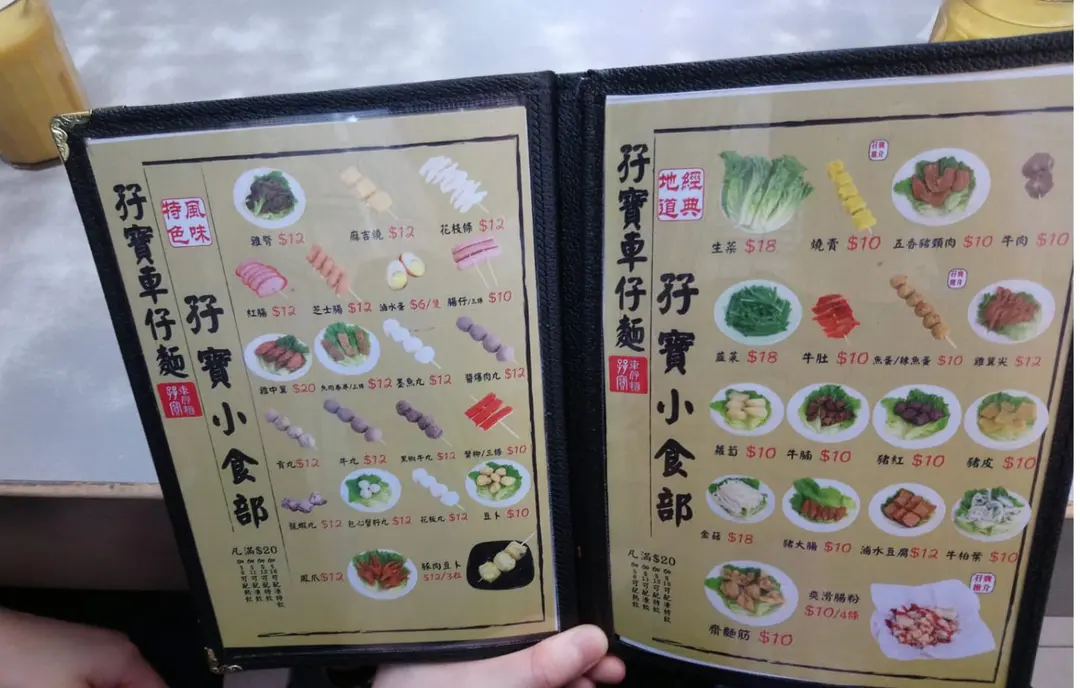 孖寶車仔麵
風味
特色
孖寶小食部
雞腎 $12
麻吉燒 $12
花枝條 $12
紅腸 $12
芝士腸 $12
滷水蛋 $6/隻
腸仔/三條 $10
雞中翼 $20
$12
墨魚丸 $12
爆肉丸 $12
貢丸 $12
牛丸 $12
黑椒牛丸 $12
蟹柳/三條 $10
蝦丸 $12
包心蟹籽丸 $12
花枝丸 $12
豆卜 $10
鳳爪 $12
豬肉豆卜
$12/3粒
凡滿$20
孖寶車仔麵
經典
地道
孖寶小食部
生菜 $18
燒賣 $10
五香豬頸肉 $10
牛肉 $10
韮菜 $18
牛肚 $10
魚蛋/辣魚蛋 $10
雞翼尖 $12
蘿蔔 $10
牛腩 $10
豬紅 $10
豬皮 $10
金菇 $18
豬大腸 $10
滷水豆腐 $12
牛柏葉 $10
齋麵筋 $10
爽滑腸粉
$10/4條
凡滿$20